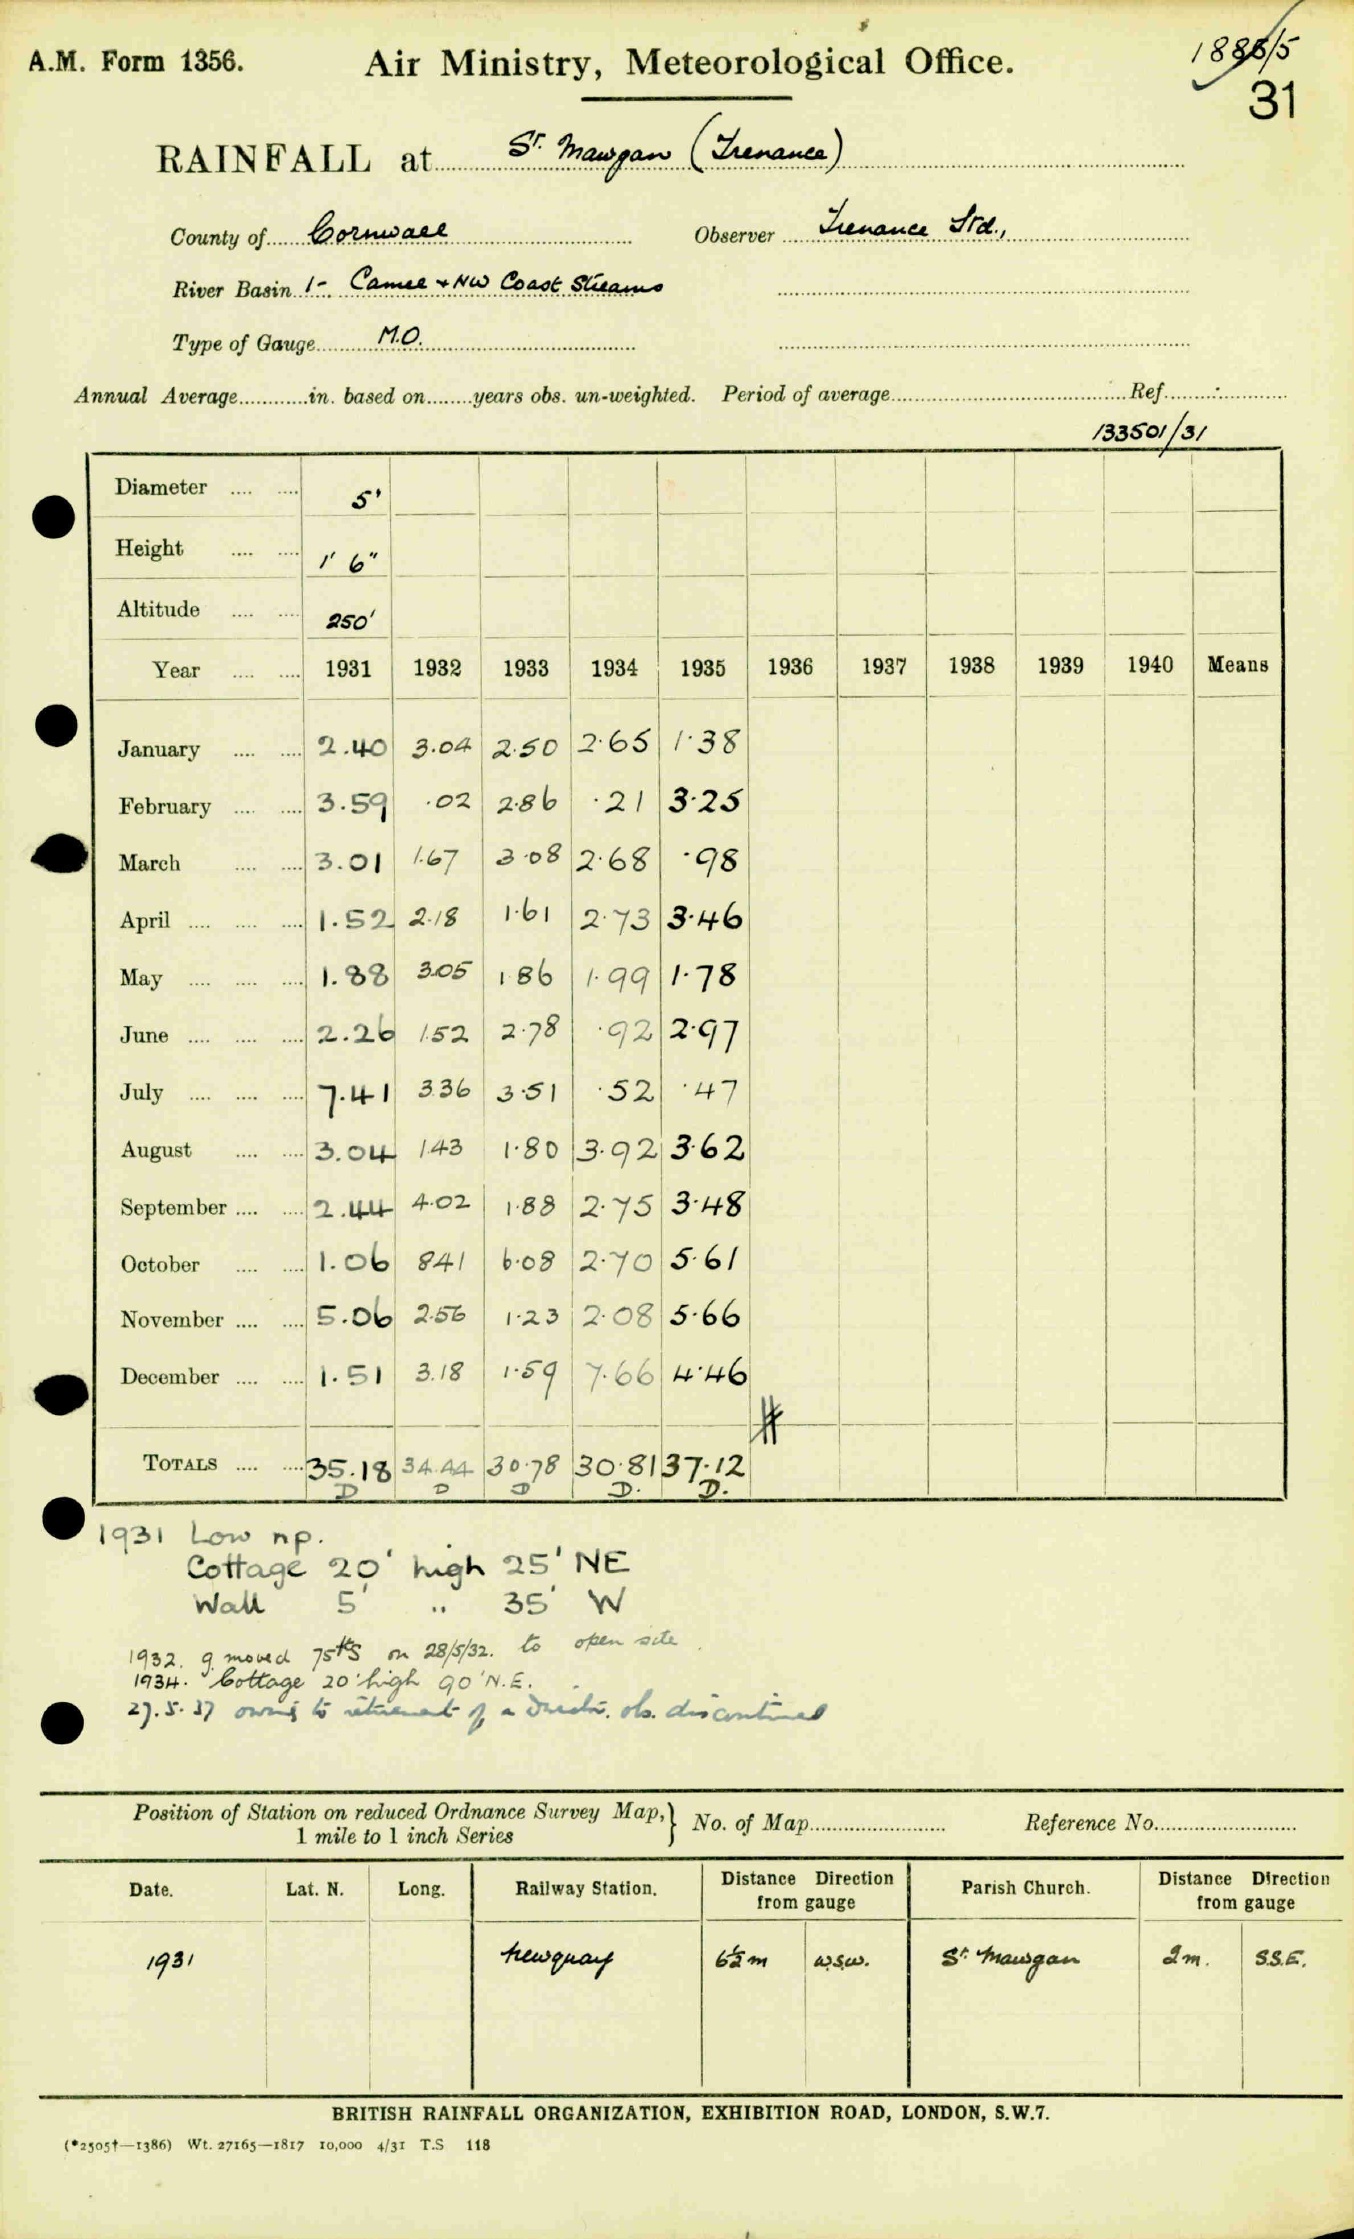 A.M. Form 1356.
Air Ministry, Meteorological Office.
1886/5
31
RAINFALL at St. Mawgan (Trenance)
County of Cornwall
Observer Trenance Std.,
River Basin 1-. Camel + NW Coast Streams
Type of Gauge M.O.
Annual Average............in. based on........years obs. un-weighted. Period of average........ Ref........
133501/31
Diameter .... .... 5'
Height .... .... 1' 6"
Altitude .... .... 250'
Year .... .... 1931 1932 1933 1934 1935 1936 1937 1938 1939 1940 Means
January .... .... 2.40 3.04 2.50 2.65 1.38
February .... .... 3.59 .02 2.86 .21 3.25
March .... .... 3.01 1.67 3.08 2.68 .98
April .... .... .... 1.52 2.18 1.61 2.73 3.46
May .... .... .... 1.88 3.05 1.86 1.99 1.78
June .... .... .... 2.26 1.52 2.78 .92 2.97
July .... .... .... 7.41 3.36 3.51 .52 .47
August .... .... 3.04 1.43 1.80 3.92 3.62
September .... .... 2.44 4.02 1.88 2.75 3.48
October .... .... 1.06 8.41 6.08 2.70 5.61
November .... .... 5.06 2.56 1.23 2.08 5.66
December .... .... 1.51 3.18 1.59 7.66 4.46
TOTALS .... .... 35.18 34.44 30.78 30.81 37.12
D D D D. D.
1931 Low n.p.
Cottage 20' high 25' NE
Wall 5' " 35' W
1932. g. moved 75 S on 28/5/32. to open site.
1934. Cottage 20' high 90' N.E.
27.5.37 owing to retirement of a obs. discontinued
Position of Station on reduced Ordnance Survey Map,
1 mile to 1 inch Series
No. of Map........
Reference No........
Date. Lat. N. Long. Railway Station. Distance from gauge Direction Parish Church. Distance from gauge Direction
1931 Newquay 6½ m W.S.W. St. Mawgan 2 m. S.S.E.
BRITISH RAINFALL ORGANIZATION, EXHIBITION ROAD, LONDON, S.W.7.
(*2505†—1386) Wt. 27165—1817 10,000 4/31 T.S 118